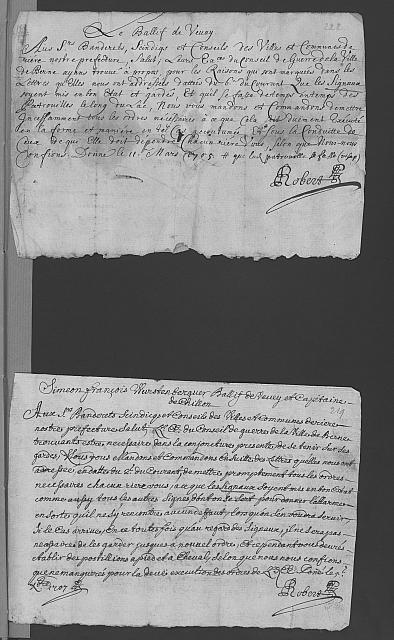 Le Ballif de Vevey
Aux Srs Banderets, Scindigs et Conseils des Villes et Communes de
riere nostre prefecture, Salut, Leurs Exces du Conseil de Guerre de la Ville
de Berne ayans trouvé à propos, pour les Raisons qui sont marquées dans les
Lettres qu'Elles nous ont addressées dattées du du Courrant, Que les Signaux
soyent mis en bon Etat et gardés, et qu'il se fasse de temps en temps des
Patrouilles le long du Lac, Nous vous mandons et Commandons de mettre
Incessamment tous les ordres necessaires à ce que Cela soit duement Executé
en la forme et maniere en tel Cas accoutumée, Et sous la Conduitte de
Ceux de qui Elle doit dépendre Chacun riere vous, selon que Nous nous
Confions. Donné le 11e Mars
Robert
Simeon François Wurstenberguer Ballif de Vevey et Capitaine
de Chillon
219
Aux Srs Banderets Scindigs et Conseils des Villes et Communes deriere
nostre prefecture Salut, LL.EE. du Conseil de guerre de la Ville de Berne
trouvants estre necessaire dans la conjoncture presente, de se tenir sur ses
gardes, Nous vous Mandons et Commandons ensuitte des Lettres qu'elles nous ont
addressées en datte du du Courant, de mettre promptement tous les ordres
necessaires chacun riere vous, a ce que les signaux soyent mis en bon Estat
comme aussy tous les autres Signes dont on se sert pour donner l'allarme
en sorte qu'il ne s'y rencontre aucune faute, lors qu'on s'en voudra servir
si le Cas arrive, En ce toutes fois qu'au regard des Signaux, il ne sera pas
necessaire de les garder jusques a nouvel ordre, Et cependant vous devrés
etablir des postillions a pied et a Cheval, selon que nous nous confions
que ne manquerés pour la deüe execution des ordres de LL.EE. Donné le
1707
Robert